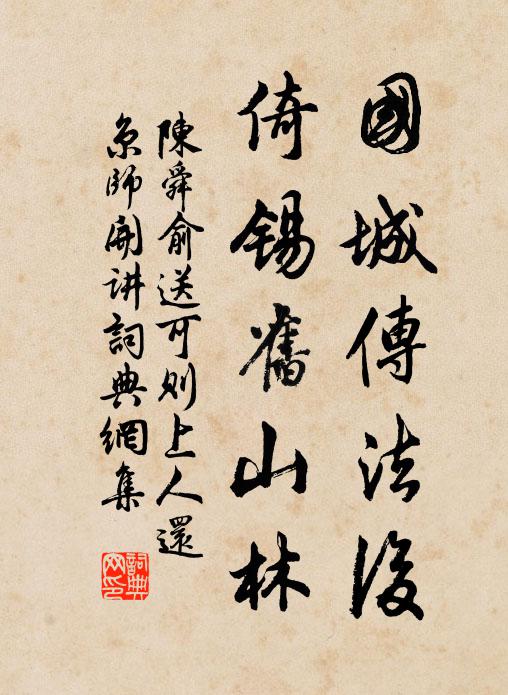 國城傳法後
倚錫舊山林
陳舜俞送可則上人還
京師開讲詞典網集
詞典网印